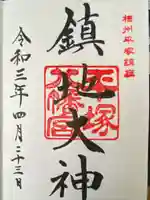 相州平塚
鎮地大神
平塚八幡宮
令和三年四月二十三日